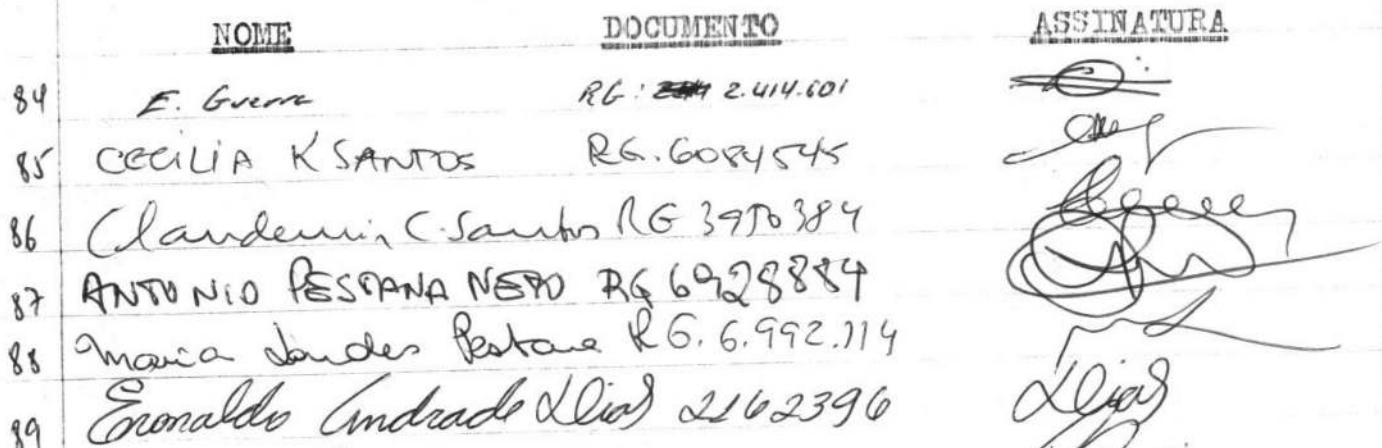 NOME DOCUMENTO ASSINATURA
84 E. Guerra RG: 2.414.601
85 CECILIA K SANTOS RG. 6084545
86 Claudemir C. Santos RG 3950384
87 ANTONIO PESTANA NETO RG 6928884
88 Maria Lourdes Pestana RG. 6.992.114
89 Eronaldo Andrade Dias 2162396 Dias